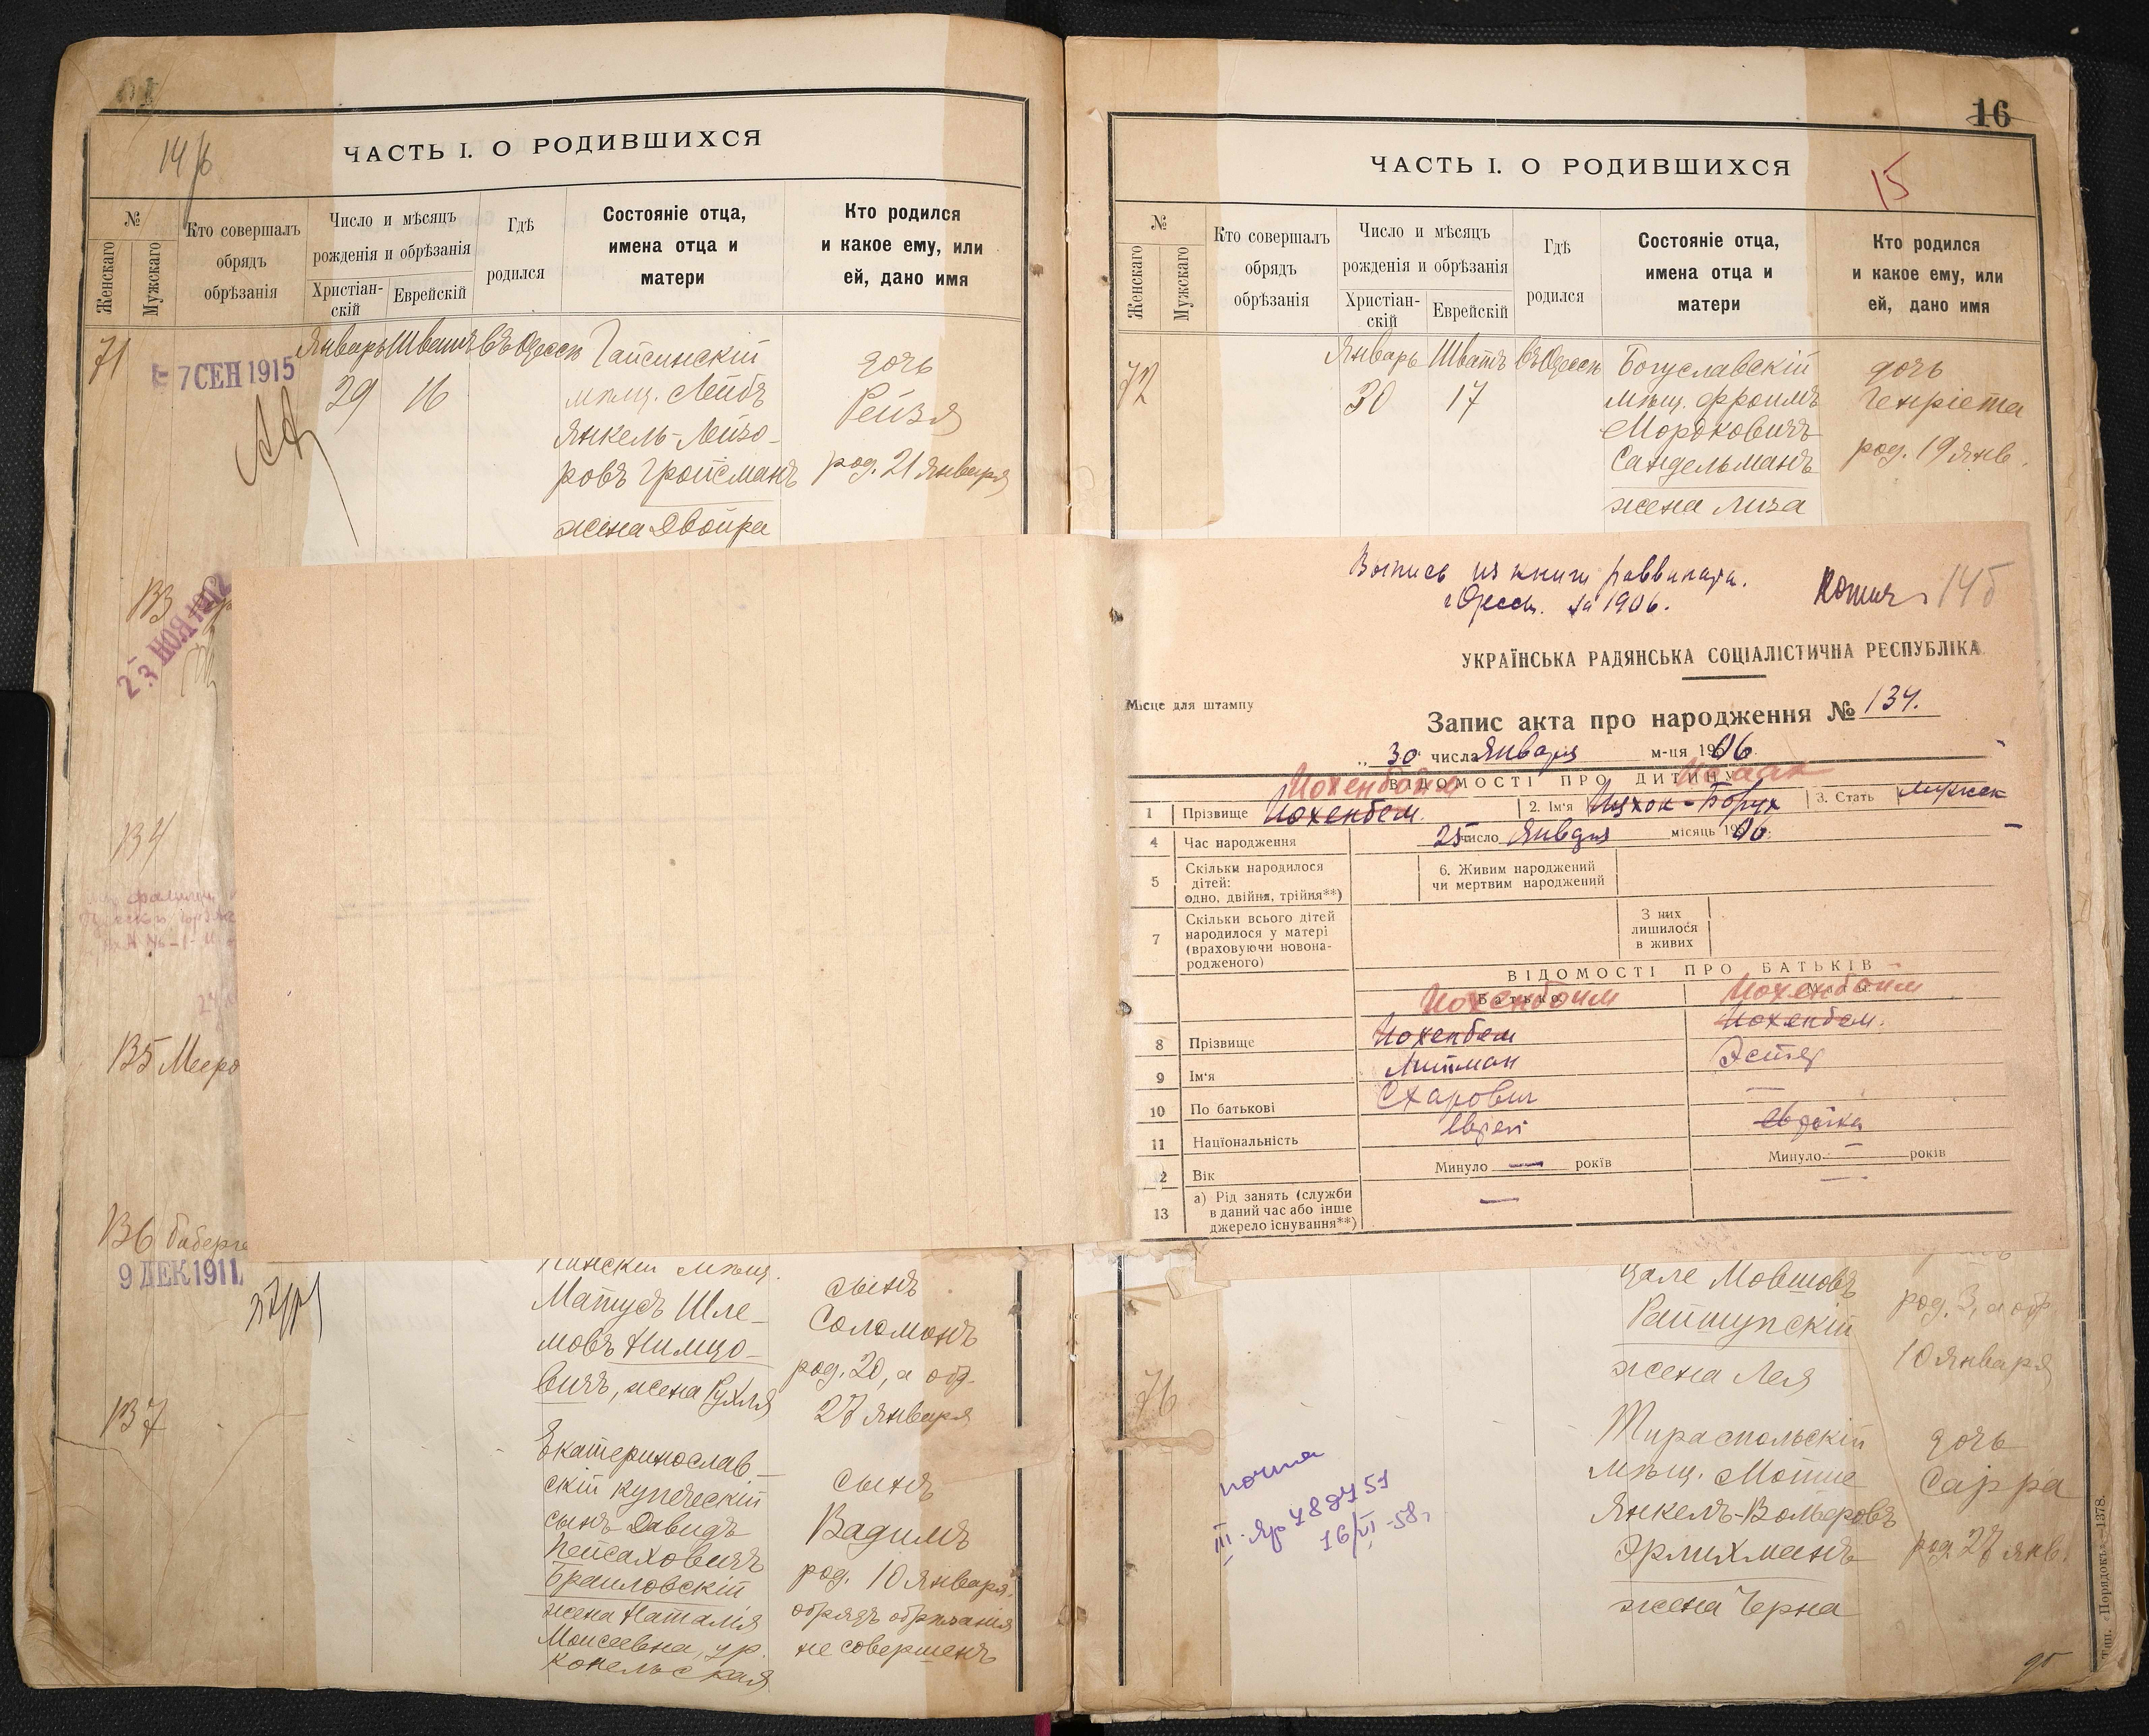 14 б
ЧАСТЬ I. О РОДИВШИХСЯ
№
Женскаго
Мужскаго
Кто совершалъ
обрядъ
обрѣзанія
Число и мѣсяцъ
рожденія и обрѣзанія
Христіан-
скій
Еврейскій
Гдѣ
родился
Состояніе отца,
имена отца и
матери
Кто родился
и какое ему, или
ей, дано имя
71
7 СЕН 1915
Январь Шватъ въ Одессѣ
29 16
Гайсинскій
мѣщ. Лейбъ
Янкель-Лейзо-
ровъ Гройсманъ
жена Двойра
дочь
Рейзя
род. 21 января
133
23 НОЯ
134
135 Мееро
136
9 ДЕК 1911
Пинскій мѣщ.
Матусъ Шле-
мовъ Нимцо-
вичъ, жена Рухля
сынъ
Соломонъ
род. 20, а обр.
27 января
137
Екатеринослав-
скій купеческій
сынъ Давидъ
Пейсаховичъ
Браиловскій
жена Наталія
Моисеевна, ур.
Копельская
сынъ
Вадимъ
род. 10 января
обрядъ обрѣзанія
не совершенъ
16
15
ЧАСТЬ I. О РОДИВШИХСЯ
№
Женскаго
Мужскаго
Кто совершалъ
обрядъ
обрѣзанія
Число и мѣсяцъ
рожденія и обрѣзанія
Христіан-
скій
Еврейскій
Гдѣ
родился
Состояніе отца,
имена отца и
матери
Кто родился
и какое ему, или
ей, дано имя
72
Январь Шватъ въ Одессѣ
30 17
Богуславскій
мѣщ. Фроимъ
Мордковичъ
Сандельманъ
жена Лиза
дочь
Генріета
род. 19 янв.
Выпись из книги раввината.
г. Одессы. за 1906.
Копия 14б
УКРАЇНСЬКА РАДЯНСЬКА СОЦІАЛІСТИЧНА РЕСПУБЛІКА
Місце для штампу
Запис акта про народження № 134.
„ 30 числа Января м-ця 1906
ВІДОМОСТІ ПРО ДИТИНУ
Иохенбойм Исаак
1 Прізвище Иохенбем. 2. Ім'я Ицхок-Борух 3. Стать мужск
4 Час народження 25 число Января місяць 1906.
5 Скільки народилося
дітей:
одно, двійня, трійня**)
6. Живим народжений
чи мертвим народжений
7 Скільки всього дітей
народилося у матері
(враховуючи новона-
родженого)
З них
лишилося
в живих
ВІДОМОСТІ ПРО БАТЬКІВ
Батько Мати
Иохенбоим Иохенбоим
8 Прізвище Иохенбем Иохенбем.
9 Ім'я Литман Эстер
10 По батькові Схарович —
11 Національність еврей еврейка
12 Вік Минуло — років Минуло — років
13 а) Рід занять (служби
в даний час або інше
джерело існування**)
—
цале Мовшовъ
Райшупскій
жена Лея
род. 3, а обр
10 января
76
Тираспольскій
мѣщ. Мотше
Янкель-Вольфовъ
Эрлихманъ
жена Черна
дочь
Сарра
род. 27 янв.
копия
16/VI-58г
Тип. „Порядокъ“—1378.